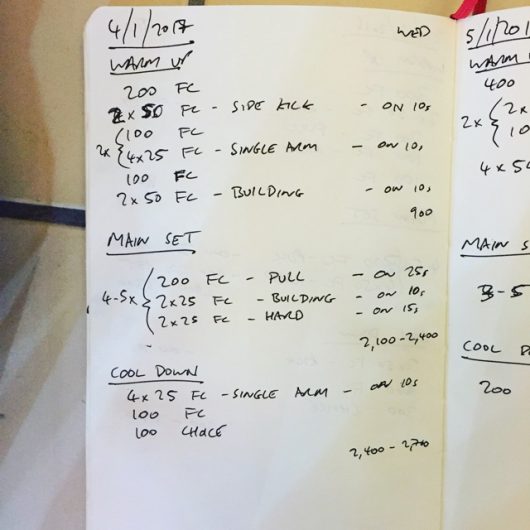 4/1/2017 WED
WARM UP
200 FC
2x50 FC - SIDE KICK - ON 10s
2x { 100 FC
4x25 FC - SINGLE ARM - ON 10s
100 FC
2x50 FC - BUILDING - ON 10s
900
MAIN SET
4-5x { 200 FC - PULL - ON 25s
2x25 FC - BUILDING - ON 10s
2x25 FC - HARD - ON 15s
2,100-2,400
COOL DOWN
4x25 FC - SINGLE ARM - ON 10s
100 FC
100 CHOICE
2,400-2,700
5/1/201
WARM U
400
2x { 2x
10
4x50
MAIN S
3-5
COOL D
200